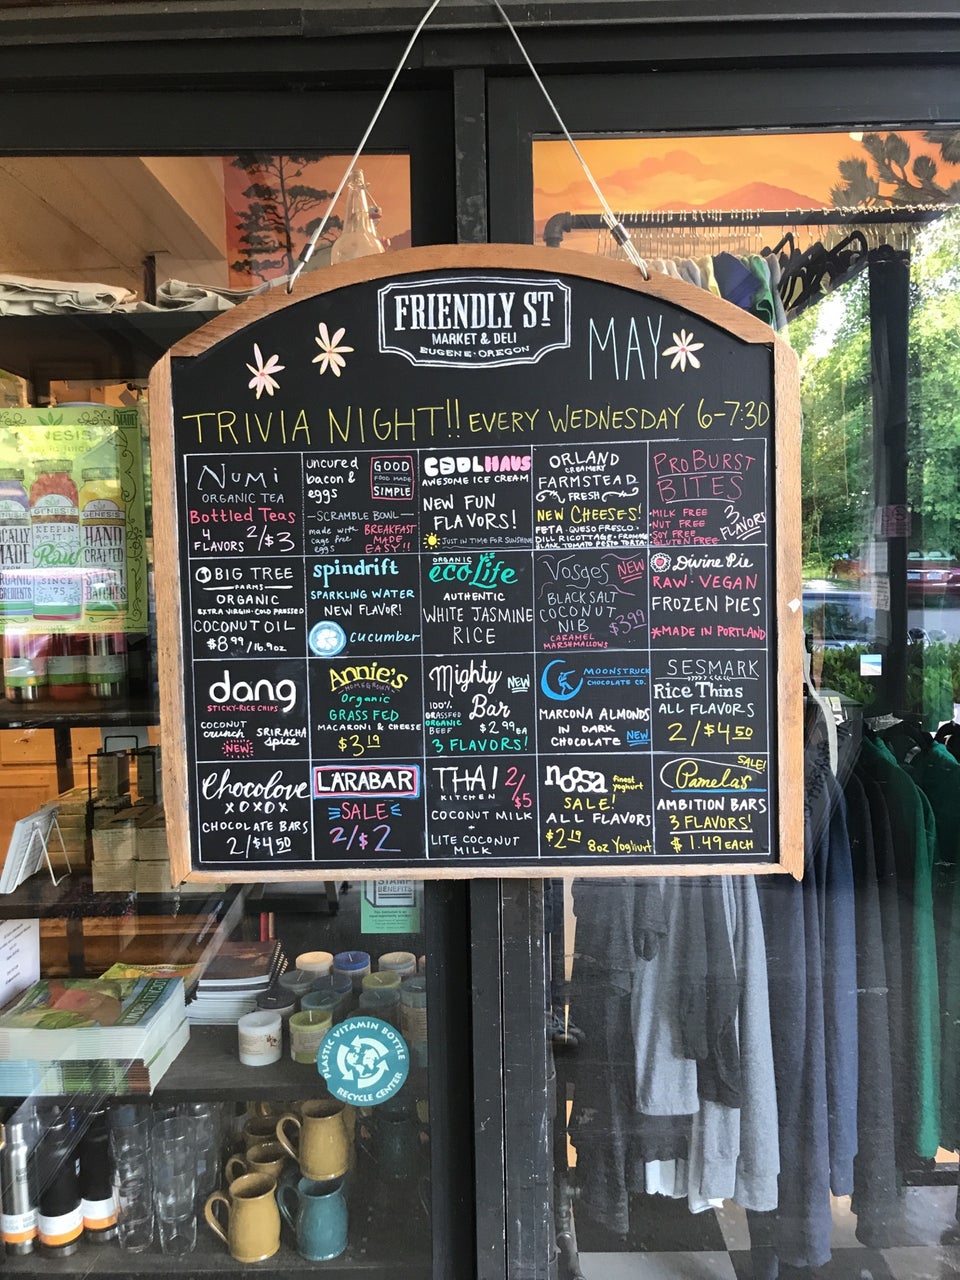 FRIENDLY ST
MARKET & DELI
EUGENE · OREGON
MAY
TRIVIA NIGHT!! EVERY WEDNESDAY 6-7:30
NUMI
ORGANIC TEA
Bottled Teas
4
FLAVORS 2/$3
uncured
bacon &
eggs
GOOD
FOOD MADE
SIMPLE
—SCRAMBLE BOWL—
made with
cage free
eggs
BREAKFAST
MADE
EASY!!
COOLHAUS
AWESOME ICE CREAM
NEW FUN
FLAVORS!
JUST IN TIME FOR SUNSHINE
ORLAND
CREAMERY
FARMSTEAD
FRESH
NEW CHEESES!
FETA · QUESO FRESCO ·
DILL RICOTTAGE · FROMAGE
BLANK TOMATO PESTO TORTA
PROBURST
BITES
MILK FREE
NUT FREE
SOY FREE
GLUTEN FREE
3
FLAVORS
BIG TREE
FARMS
ORGANIC
EXTRA VIRGIN · COLD PRESSED
COCONUT OIL
$8.99/16.9oz
spindrift
SPARKLING WATER
NEW FLAVOR!
cucumber
ORGANIC
ecolife
AUTHENTIC
WHITE JASMINE
RICE
Vosges NEW
BLACK SALT
COCONUT
NIB $3.99
CARAMEL
MARSHMALLOWS
Divine Pie
RAW · VEGAN
FROZEN PIES
*MADE IN PORTLAND
dang
STICKY-RICE CHIPS
COCONUT
crunch
SRIRACHA
spice
NEW
Annie's
HOMEGROWN
Organic
GRASS FED
MACARONI & CHEESE
$3.19
Mighty NEW
Bar
100%
GRASSFED
ORGANIC
BEEF
$2.99 EA
3 FLAVORS!
MOONSTRUCK
CHOCOLATE CO.
MARCONA ALMONDS
IN DARK
CHOCOLATE NEW
SESMARK
Rice Thins
ALL FLAVORS
2/$4.50
Chocolove
XOXOX
CHOCOLATE BARS
2/$4.50
LÄRABAR
SALE
2/$2
THAI
KITCHEN
2/$5
COCONUT MILK
+
LITE COCONUT
MILK
noosa finest yoghurt
SALE!
ALL FLAVORS
$2.19 8oz Yoghurt
SALE!
Pamela's
AMBITION BARS
3 FLAVORS!
$1.49 EACH
MADE
GENESIS
KEEPIN'
Raw
SINCE
'75
HAND
CRAFTED
STAMP
BENEFITS
PLASTIC VITAMIN BOTTLE
RECYCLE CENTER